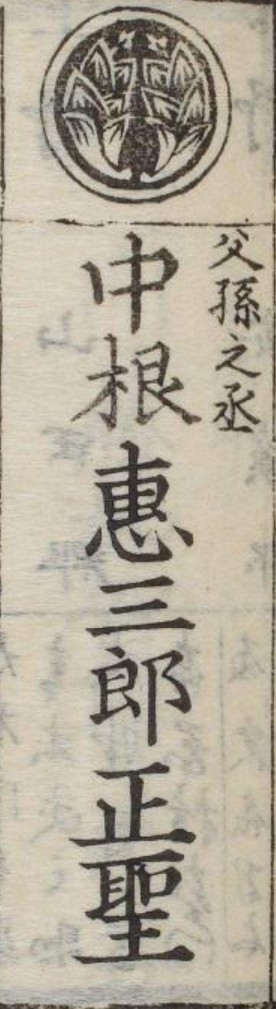 父孫之丞
中根惠三郎正聖